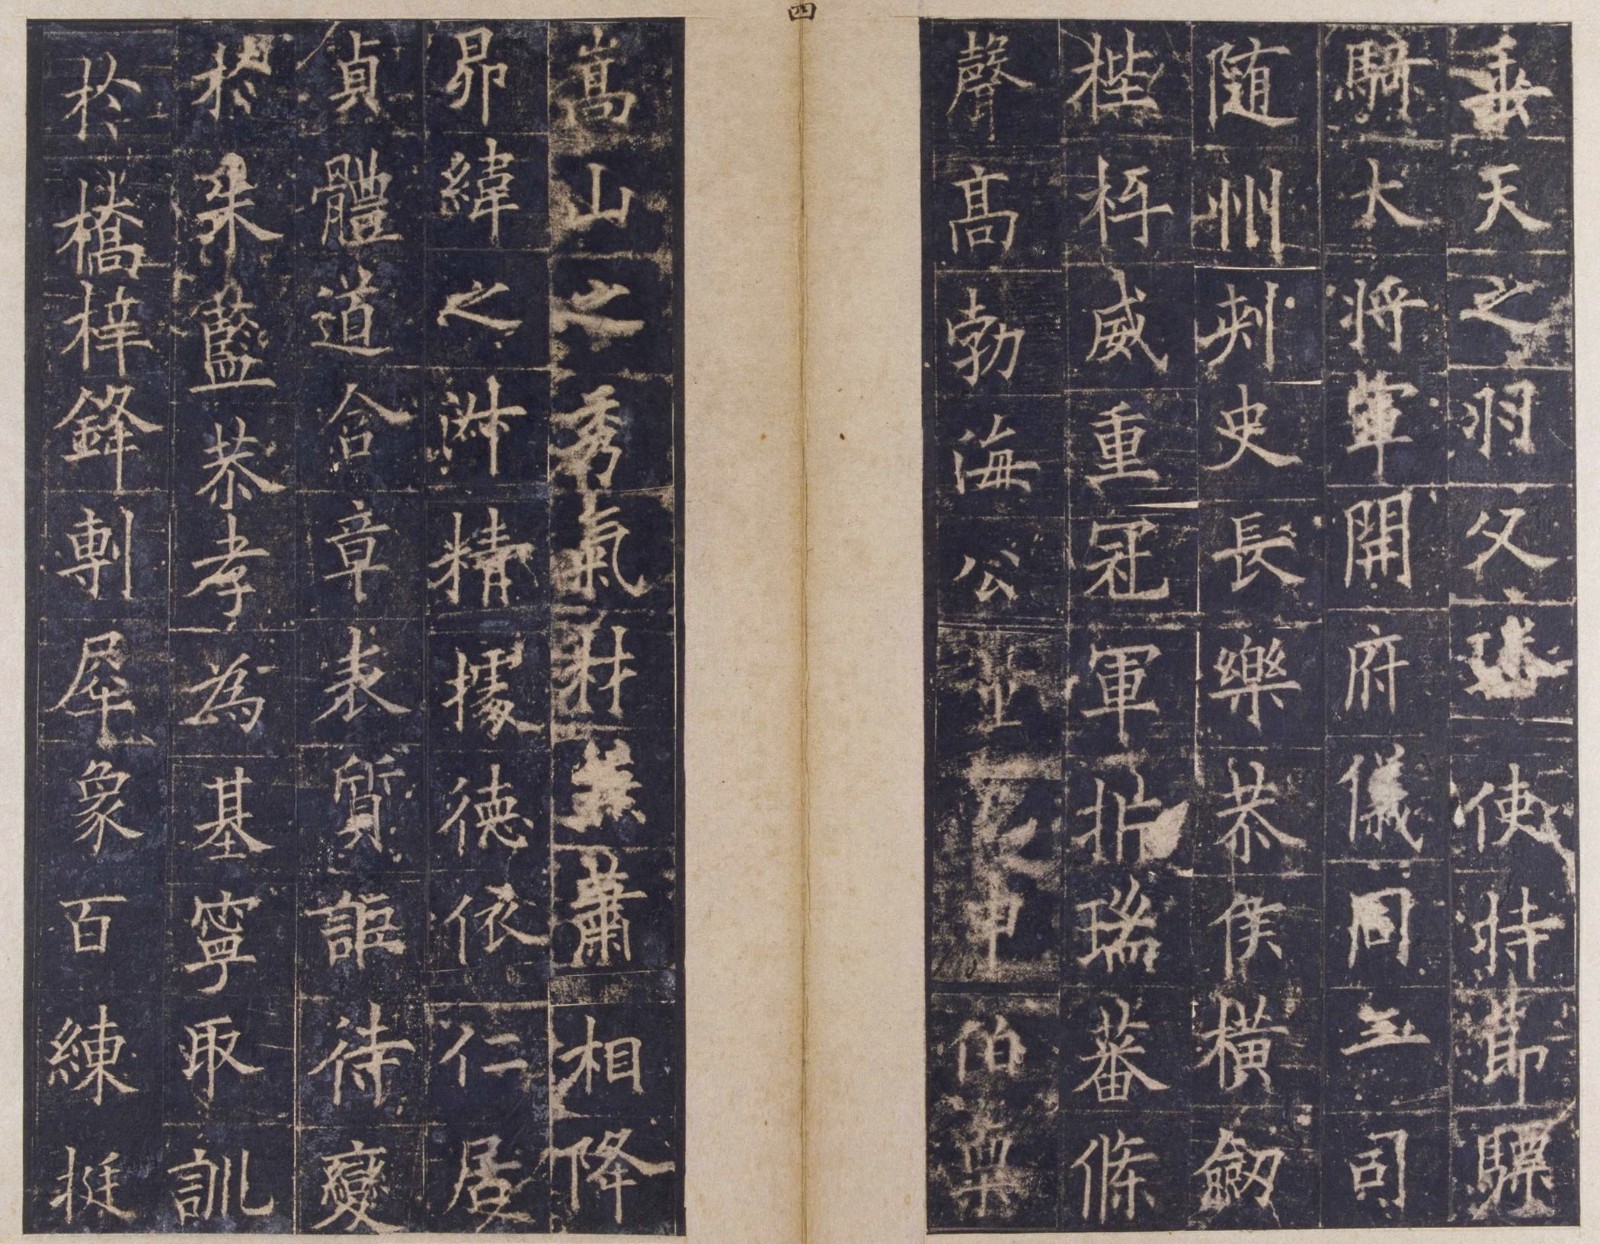 四
垂天之羽父璠使持節驃
騎大將軍開府儀同三司
隨州刺史長樂恭侯橫劒
梐枑威重冠軍析瑞蕃條
聲高勃海公申伯稟
嵩山之秀氣材兼蕭相降
昴緯之淑精據德依仁居
貞體道含章表質詎待變
於朱藍恭孝為基寧取訓
於橋梓鋒剸犀象百練挺